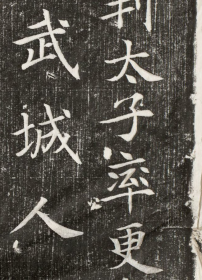 到太子率更
武城人